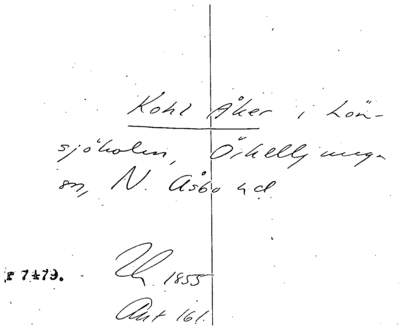 Kohl Åker i Lön-
sjöholm, Örkelljunga
sn, N. Åsbo hd
r 7479.
1855
Ant 161.